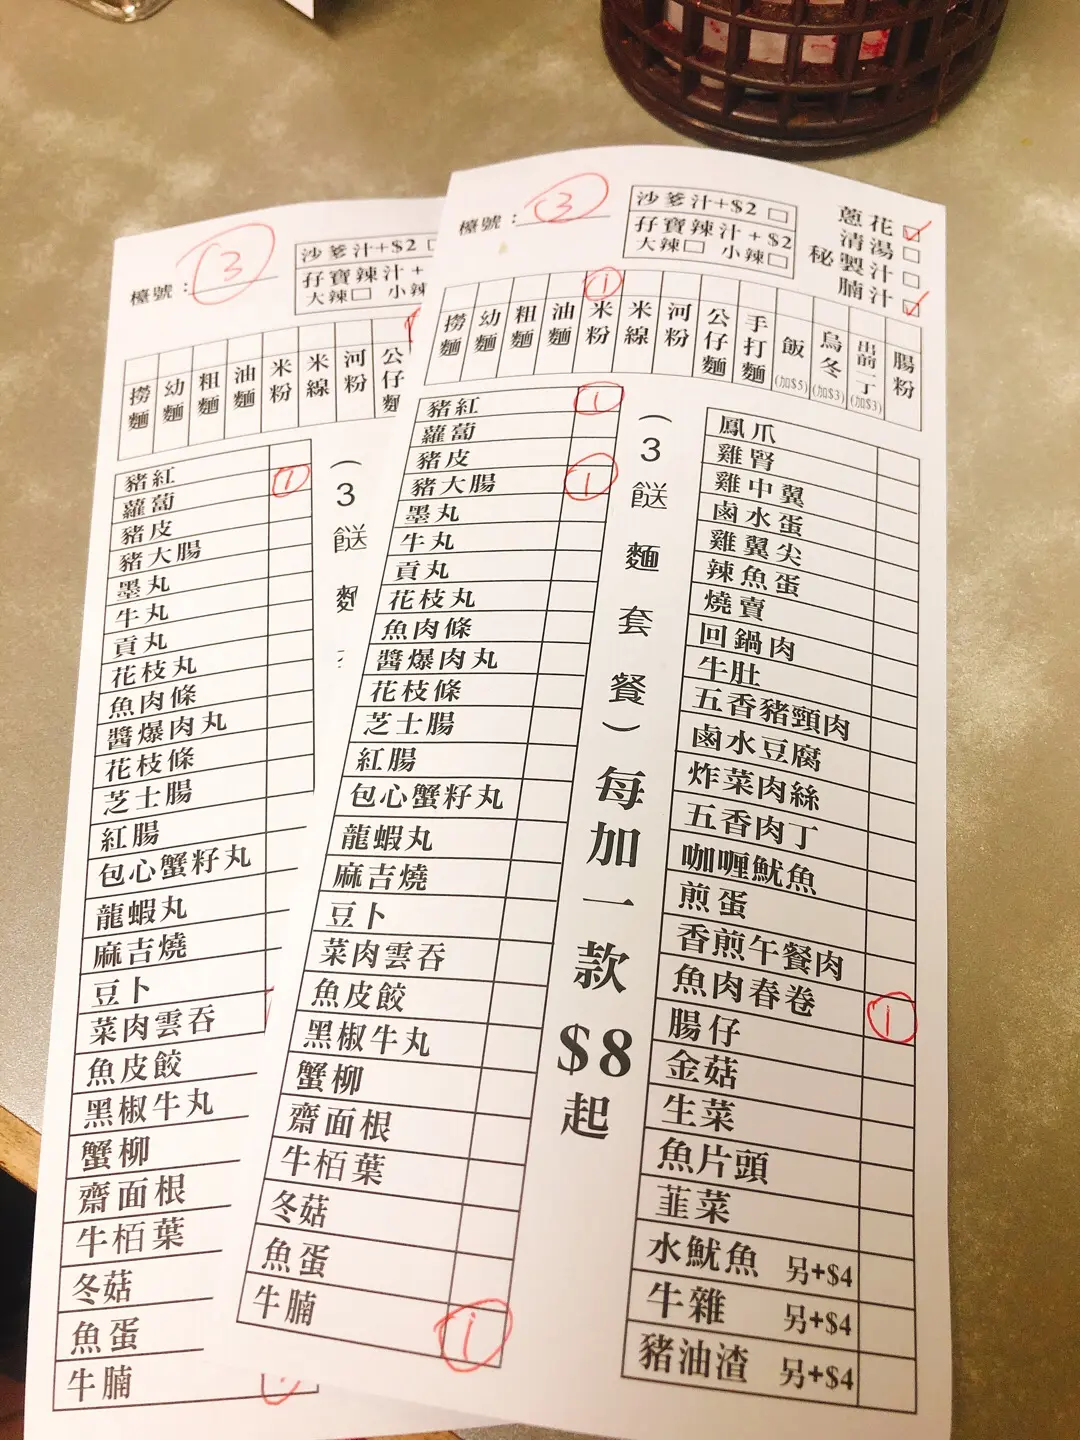 檯號：③
沙爹汁+$2
孖寶辣汁+
大辣□ 小辣
撈麵
幼麵
粗麵
油麵
米粉
米線
河粉
公仔麵
豬紅
蘿蔔 ①
豬皮
豬大腸
墨丸
牛丸
貢丸
花枝丸
魚肉條
醬爆肉丸
花枝條
芝士腸
紅腸
包心蟹籽丸
龍蝦丸
麻吉燒
豆卜
菜肉雲吞
魚皮餃
黑椒牛丸
蟹柳
齋面根
牛栢葉
冬菇
魚蛋
牛腩
（3餸麵
檯號：③
沙爹汁+$2 □
孖寶辣汁+$2
大辣□ 小辣□
蔥花☑
清湯□
秘製汁□
腩汁☑
撈麵
幼麵
粗麵
油麵
米粉 ①
米線
河粉
公仔麵
手打麵
飯(加$5)
烏冬(加$3)
出前一丁(加$3)
腸粉
豬紅 ①
蘿蔔
豬皮
豬大腸 ①
墨丸
牛丸
貢丸
花枝丸
魚肉條
醬爆肉丸
花枝條
芝士腸
紅腸
包心蟹籽丸
龍蝦丸
麻吉燒
豆卜
菜肉雲吞
魚皮餃
黑椒牛丸
蟹柳
齋面根
牛栢葉
冬菇
魚蛋
牛腩 ①
（3餸麵套餐）每加一款$8起
鳳爪
雞腎
雞中翼
鹵水蛋
雞翼尖
辣魚蛋
燒賣
回鍋肉
牛肚
五香豬頸肉
鹵水豆腐
炸菜肉絲
五香肉丁
咖喱魷魚
煎蛋
香煎午餐肉
魚肉春卷 ①
腸仔
金菇
生菜
魚片頭
韭菜
水魷魚 另+$4
牛雜 另+$4
豬油渣 另+$4